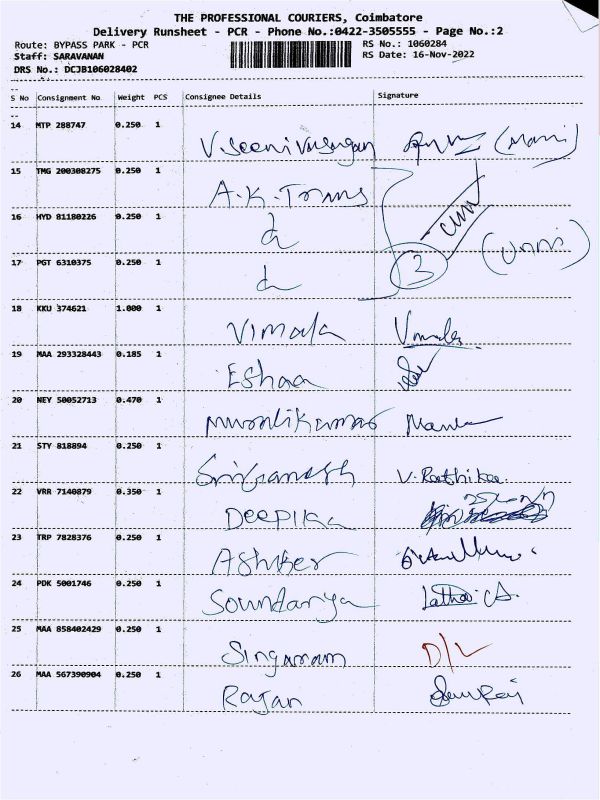 THE PROFESSIONAL COURIERS, Coimbatore
Delivery Runsheet - PCR - Phone No.:0422-3505555 - Page No.:2
Route: BYPASS PARK - PCR RS No.: 1060284
Staff: SARAVANAN RS Date: 16-Nov-2022
DRS No.: DCJB106028402
--
S No Consignment No Weight PCS Consignee Details Signature
--
14 MTP 288747 0.250 1 V.Seenivasagan (Mani)
15 TMG 200308275 0.250 1 A.K.Trans
16 HYD 81180226 0.250 1
3 (Unni)
17 PGT 6310375 0.250 1
18 KKU 374621 1.000 1 Vimala Vimala
19 MAA 293328443 0.185 1 Eshaa
20 NEY 50052713 0.470 1 Muralikumar
21 STY 818894 0.250 1 Sriganesh V. Rathika
22 VRR 7140879 0.350 1 Deepika
23 TRP 7828376 0.250 1
24 PDK 5001746 0.250 1 Soundarya Latha
25 MAA 858402429 0.250 1 Singaram D/L
26 MAA 567390904 0.250 1 Rajan